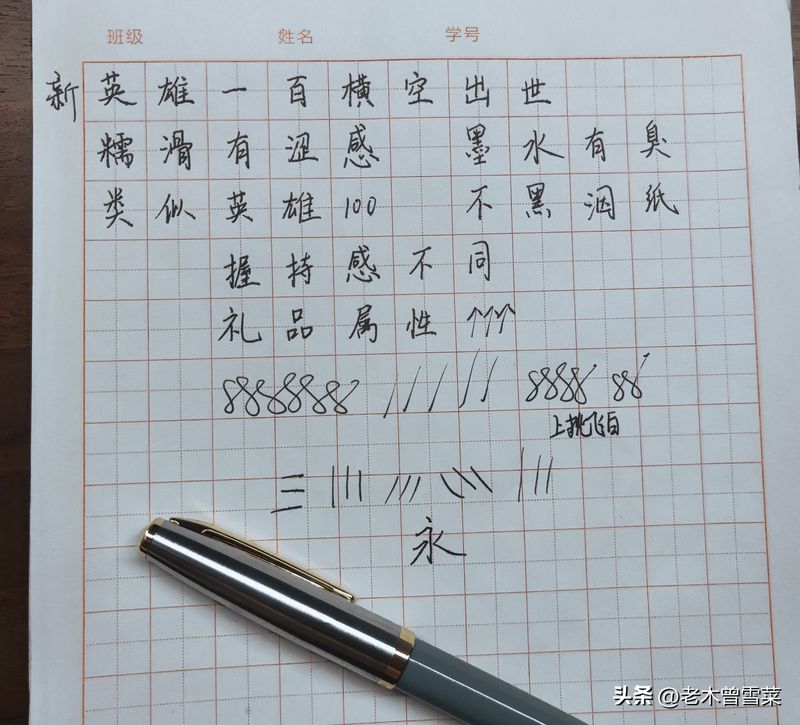 班级 姓名 学号
新英雄一百横空出世
糯滑有涩感 墨水有臭
类似英雄100 不黑洇纸
握持感不同
礼品属性↑↑↑
888888 8888 88
上挑飞白
永
头条 @老木曾雪菜